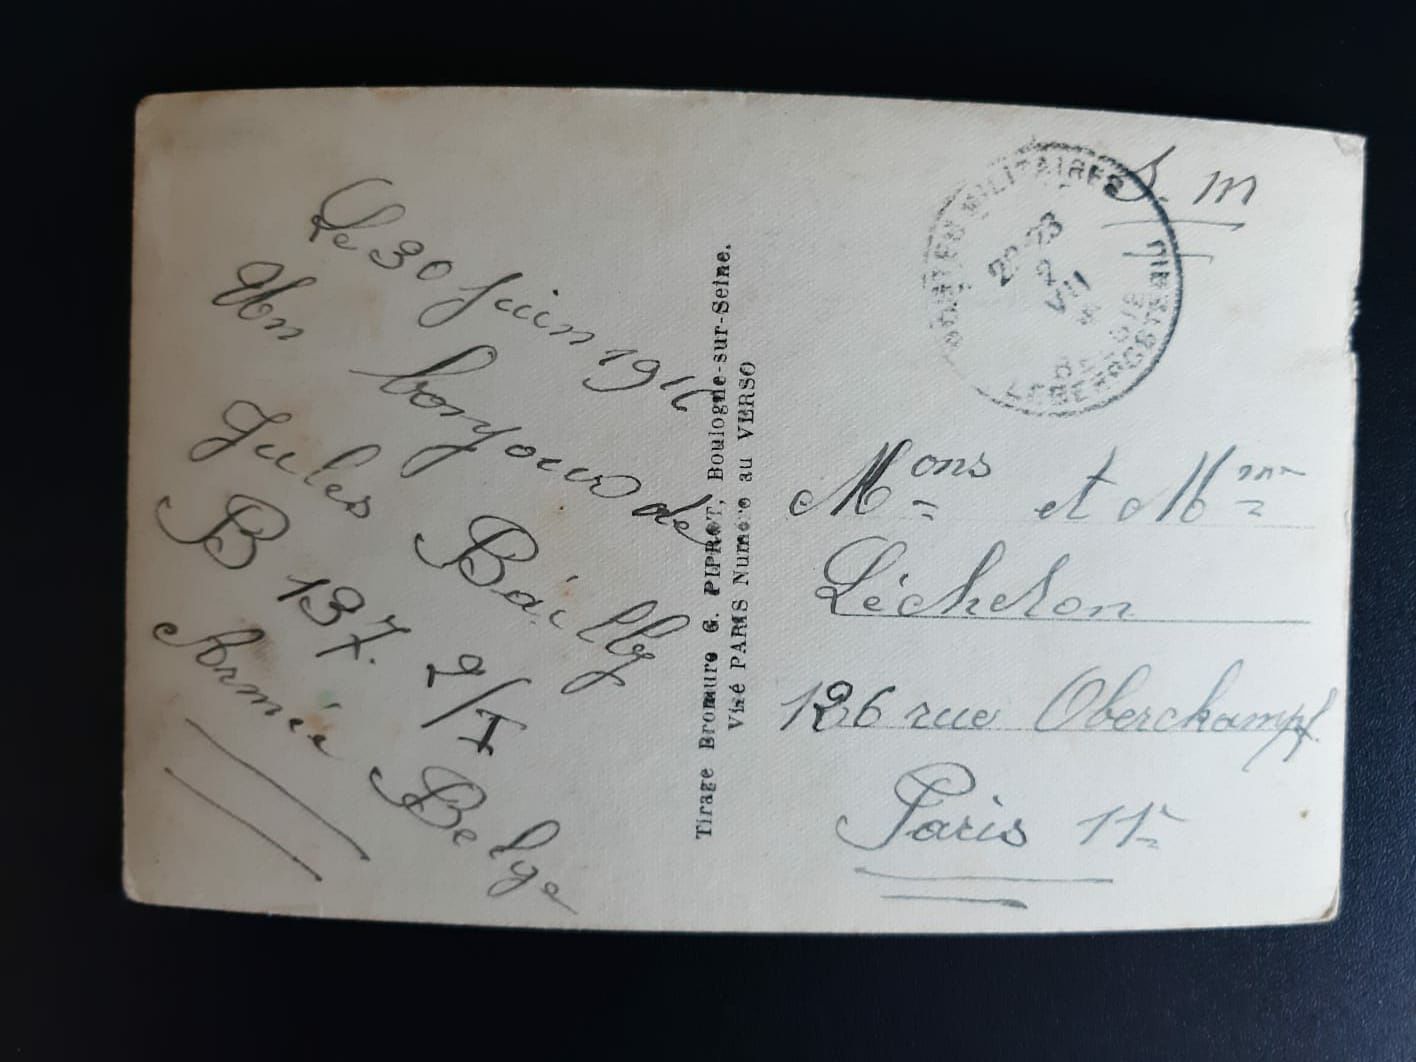 Le 30 Juin 1916
Un bonjour de
Jules Bailly
B 137. 2/I
Armée Belge
Tirage Bromure G. PIPROT, Boulogne-sur-Seine.
Visé PARIS Numéro au VERSO
S. M
MILITAIRES
BELGIE
Mons et Mme
Léchelon
126 rue Oberckampf
Paris 11e